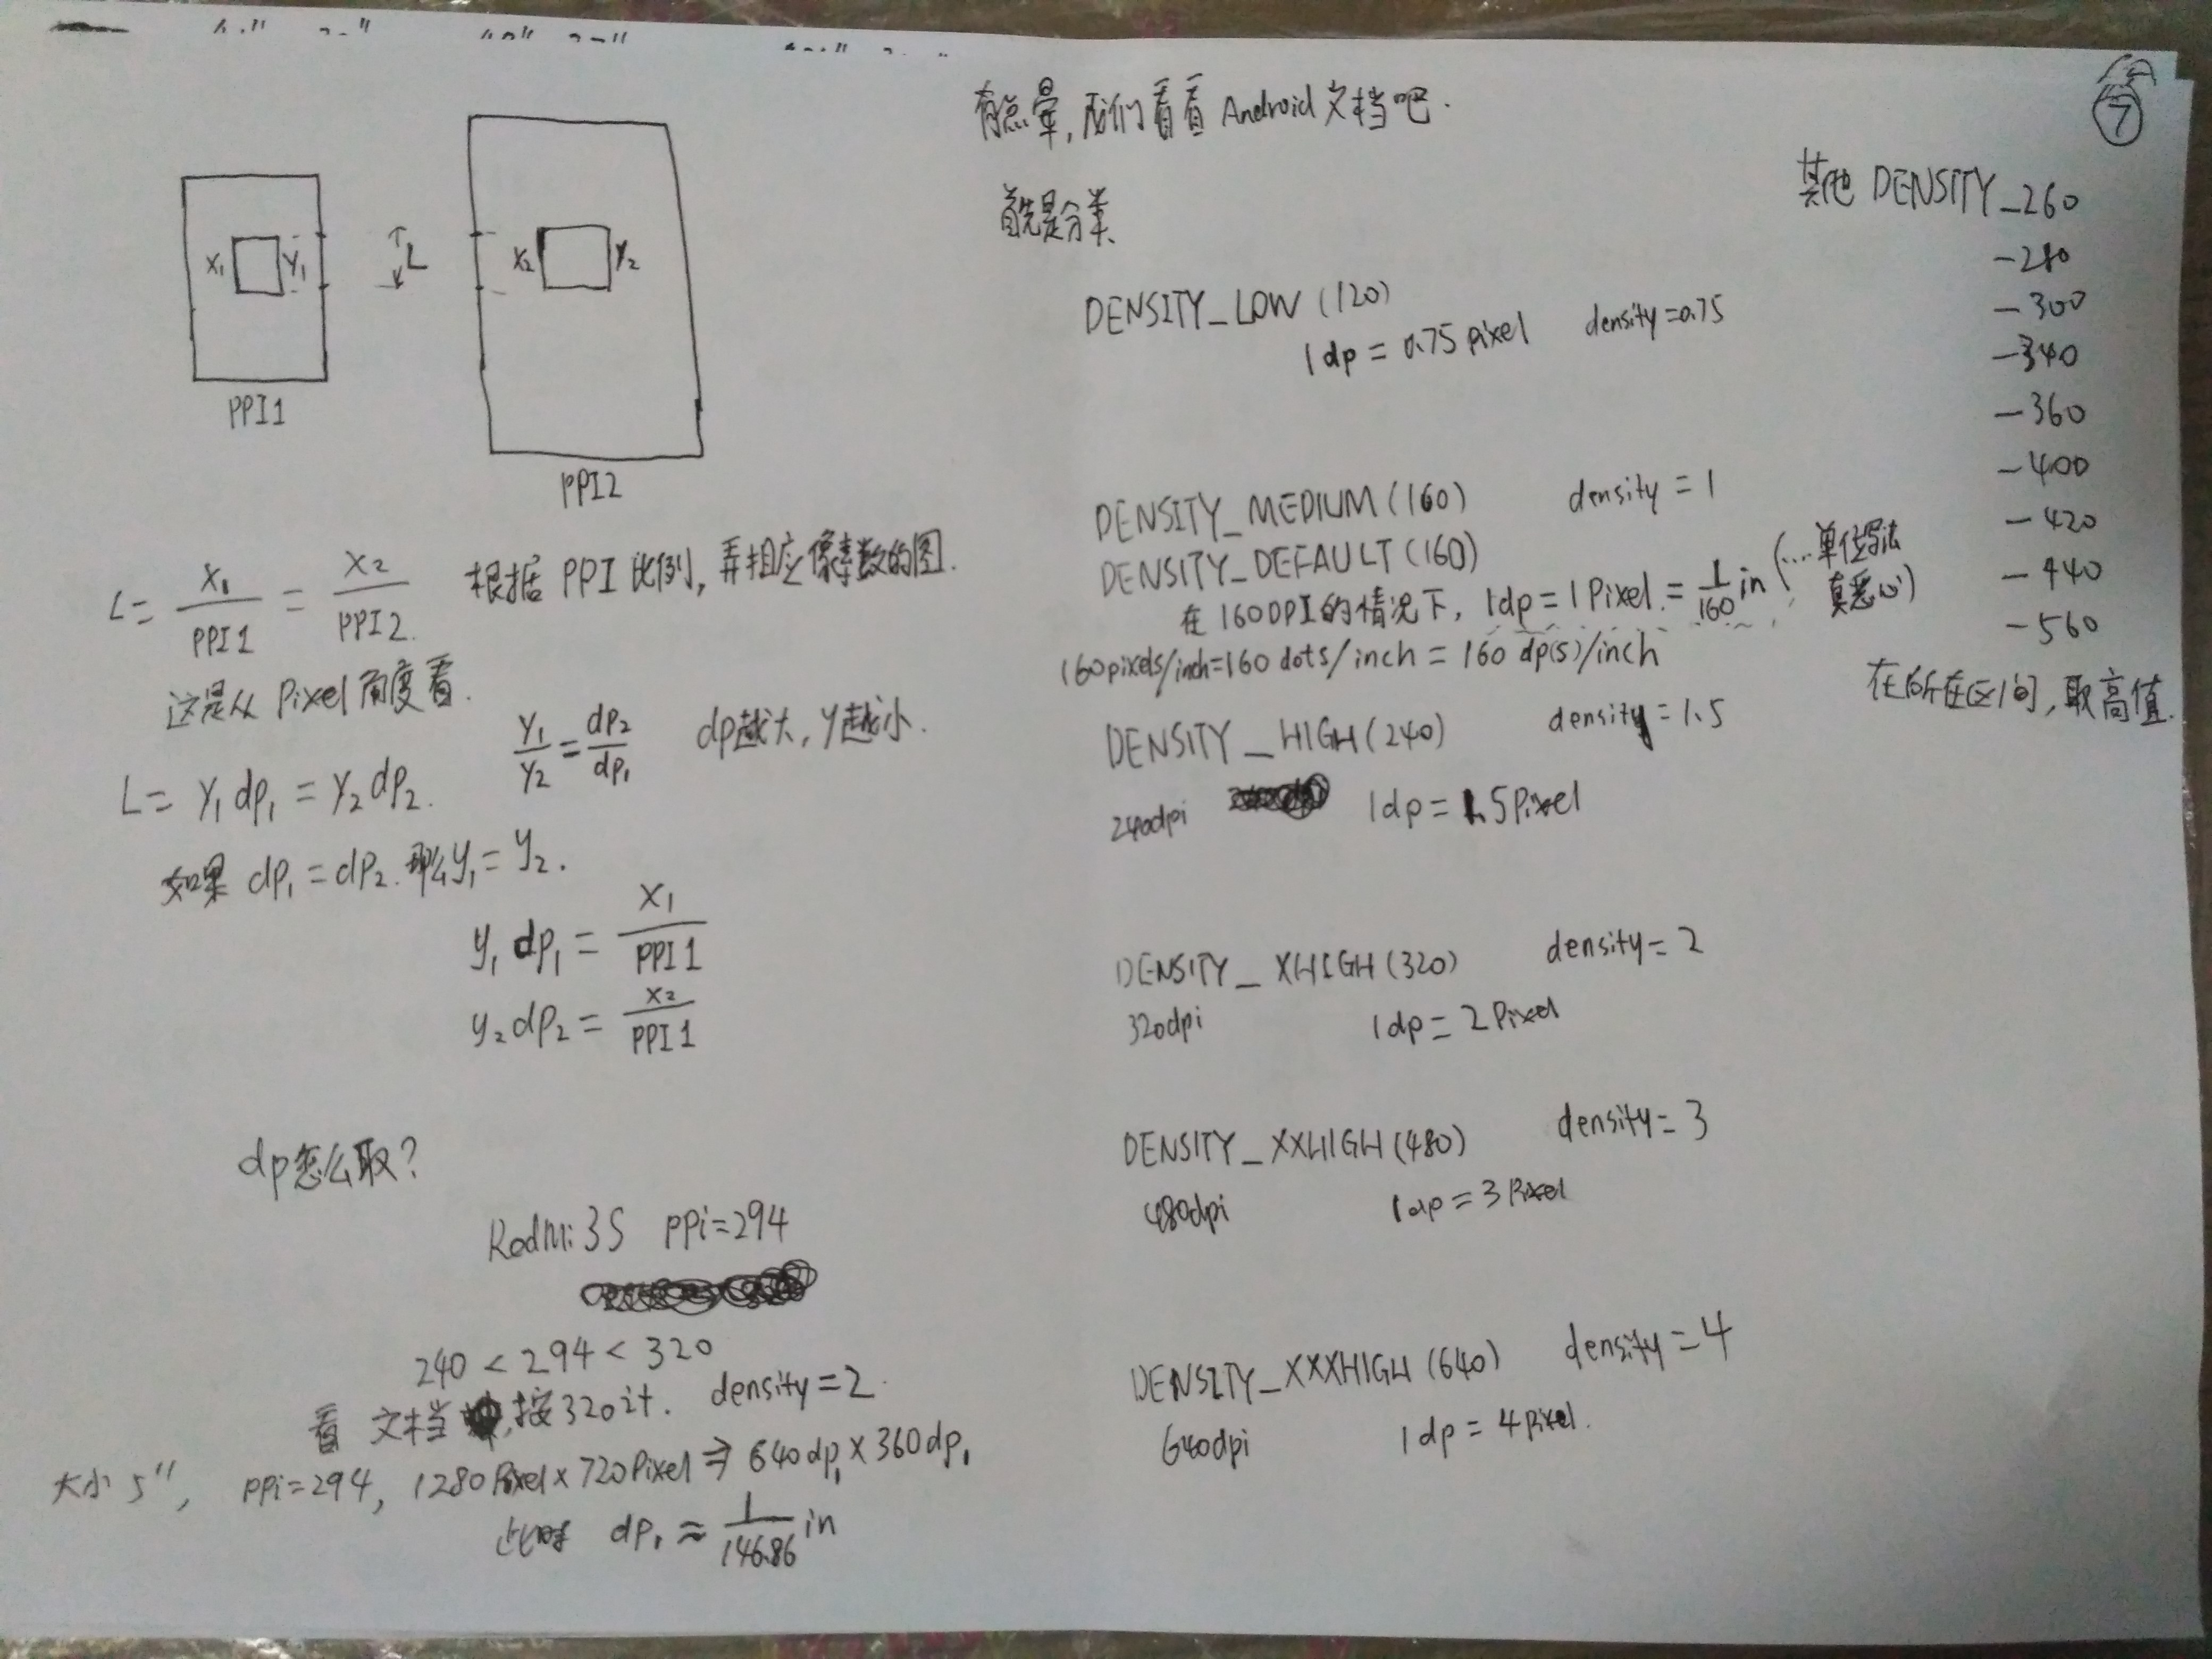 7
X₁ Y₁
L
X₂ Y₂
PPI1
PPI2
L = X₁/PPI1 = X₂/PPI2. 根据PPI比例,弄相应像素数的图.
这是从Pixel角度看.
L = Y₁dp₁ = Y₂dp₂. Y₁/Y₂ = dp₂/dp₁ dp越大,y越小.
如果dp₁=dp₂.那么y₁=y₂.
y₁dp₁ = X₁/PPI1
y₂dp₂ = X₂/PPI1
dp怎么取?
RedMi 3S PPi=294
240 < 294 < 320
看文档,按320计. density=2.
大小5", PPi=294, 1280Pixel×720Pixel⇒640dp₁×360dp₁
此时 dp₁ ≈ 1/146.86 in
有点晕,我们看看Android文档吧.
首先是分类
DENSITY_LOW(120)
1dp = 0.75pixel density=0.75
DENSITY_MEDIUM(160) density=1
DENSITY_DEFAULT(160)
在160DPI的情况下, 1dp=1Pixel.=1/160 in (...单位写法真恶心)
160pixels/inch=160 dots/inch = 160 dp(s)/inch
DENSITY_HIGH(240) density=1.5
240dpi 1dp=1.5Pixel
DENSITY_XHIGH(320) density=2
320dpi 1dp=2Pixel
DENSITY_XXHIGH(480) density=3
480dpi 1dp=3Pixel
DENSITY_XXXHIGH(640) density=4
640dpi 1dp=4pixel.
其他 DENSITY_260
_280
_300
_340
_360
_400
_420
_440
_560
在所在区间,取高值.